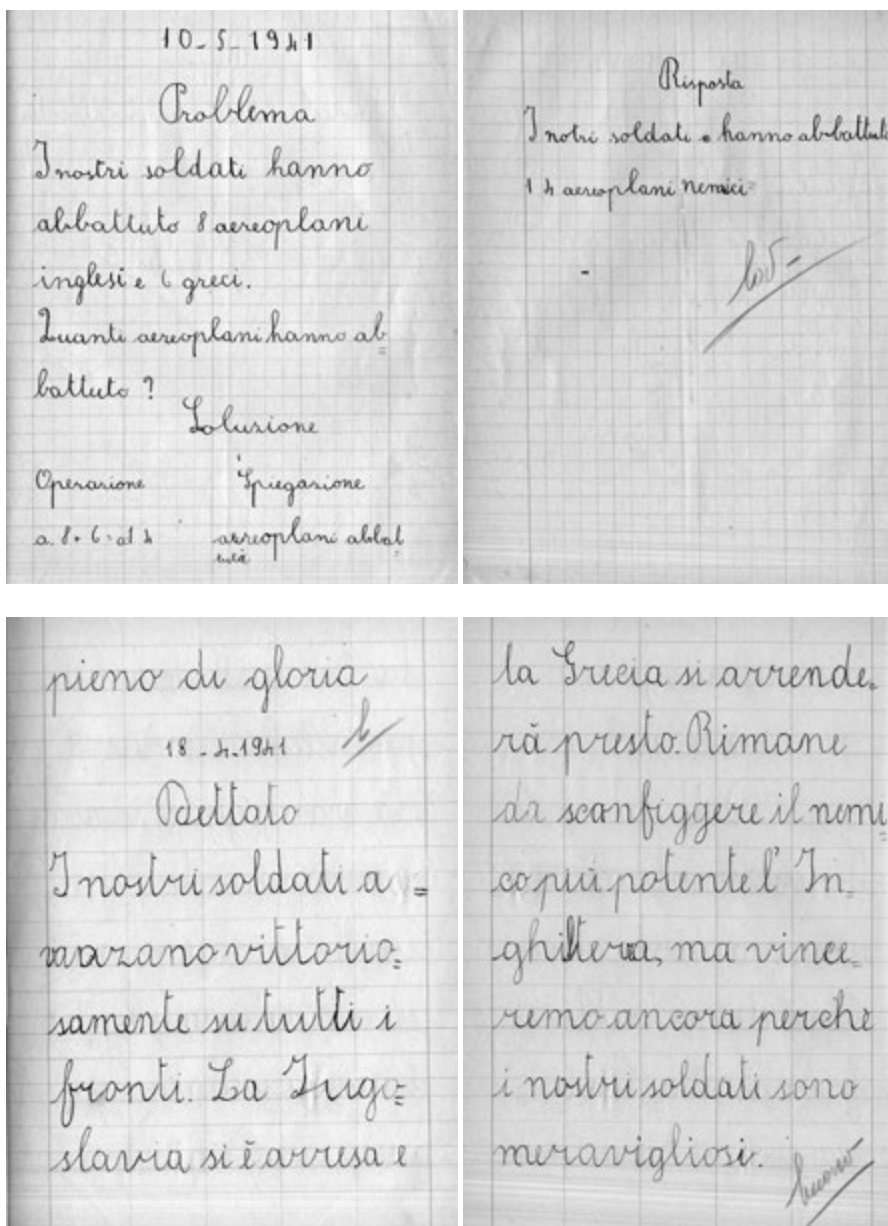 10-5-1941
Problema
I nostri soldati hanno
abbattuto 8 aereoplani
inglesi e 6 greci.
Quanti aereoplani hanno ab=
battuto ?
Soluzione
Operazione Spiegazione
a. 8+6= a14 aereoplani abbat
tuti
Risposta
I notri soldati hanno abbattuto
14 aereoplani nemici=
lod-
pieno di gloria
b
18-4-1941
Dettato
I nostri soldati a=
vanzano vittorio=
samente su tutti i
fronti. La Iugo=
slavia si è arresa e
la Grecia si arrende=
rà presto. Rimane
da sconfiggere il nemi=
co più potente l' In=
ghilterra, ma vince=
remo ancora perchè
i nostri soldati sono
meravigliosi.
buono